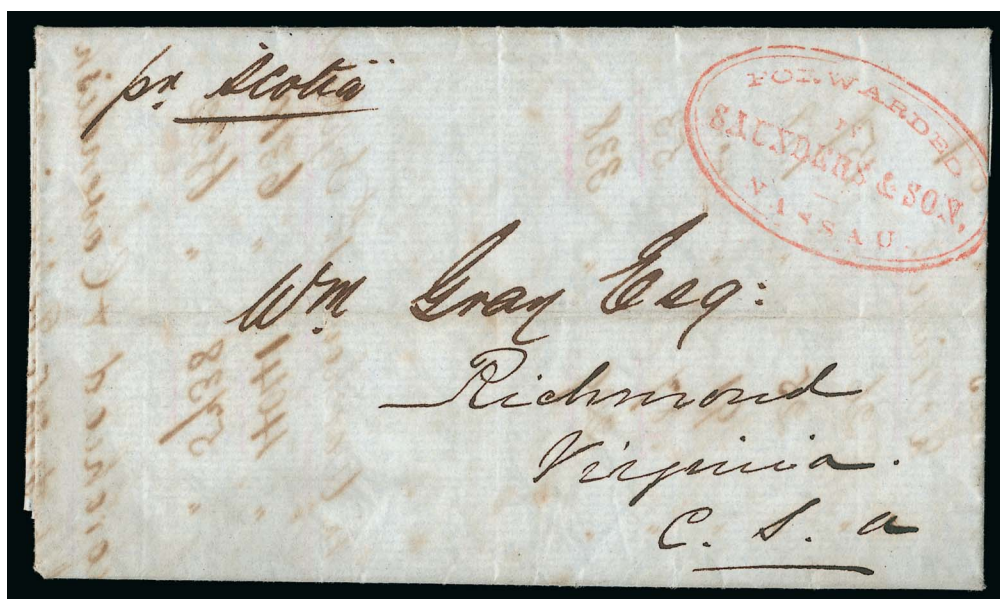 pr. Scotia
FORWARDED
BY
SAUNDERS & SON,
NASSAU.
Wm Gray Esq:
Richmond
Virginia.
C. S. a